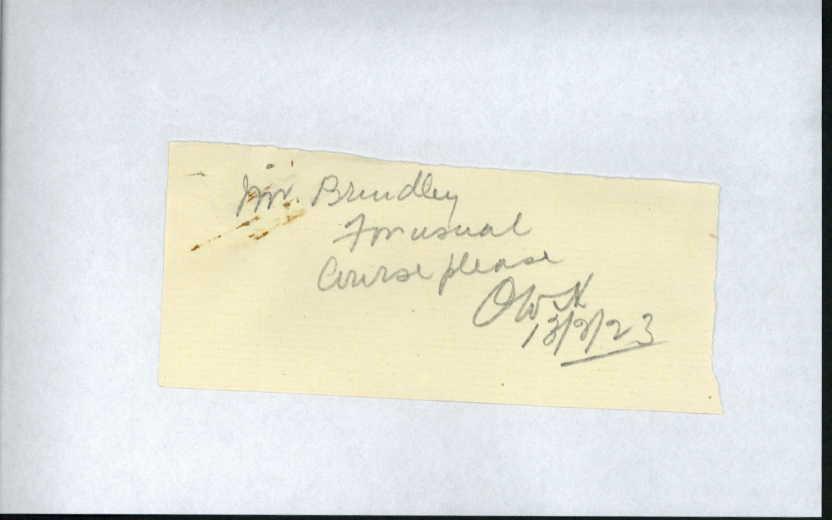 Mr. Brindley
For usual
Course please
13/2/23